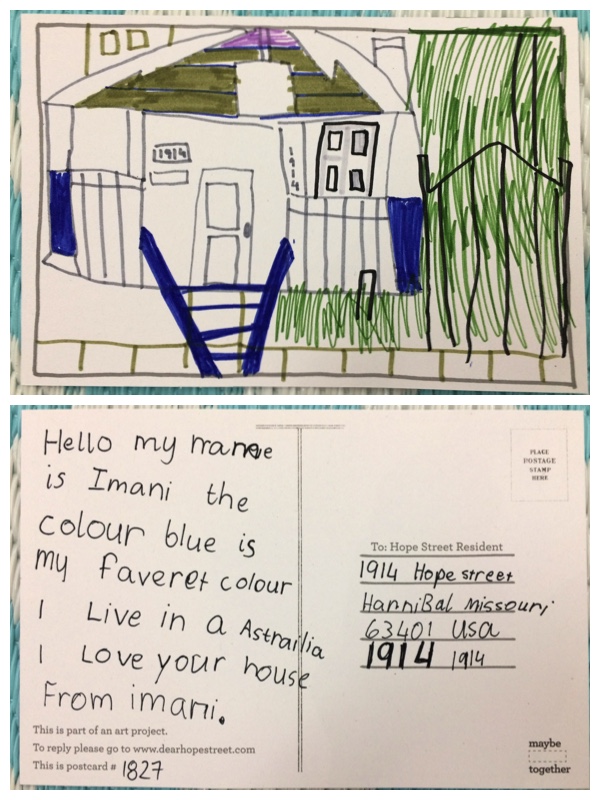 1914
1914
Hello my name
is Imani the
colour blue is
my faveret colour
I Live in a Astrailia
I Love your house
From imani.
This is part of an art project.
To reply please go to www.dearhopestreet.com
This is postcard # 1827
PLACE
POSTAGE
STAMP
HERE
To: Hope Street Resident
1914 Hope street
HanniBal missouri
63401 USA
1914 1914
maybe
together